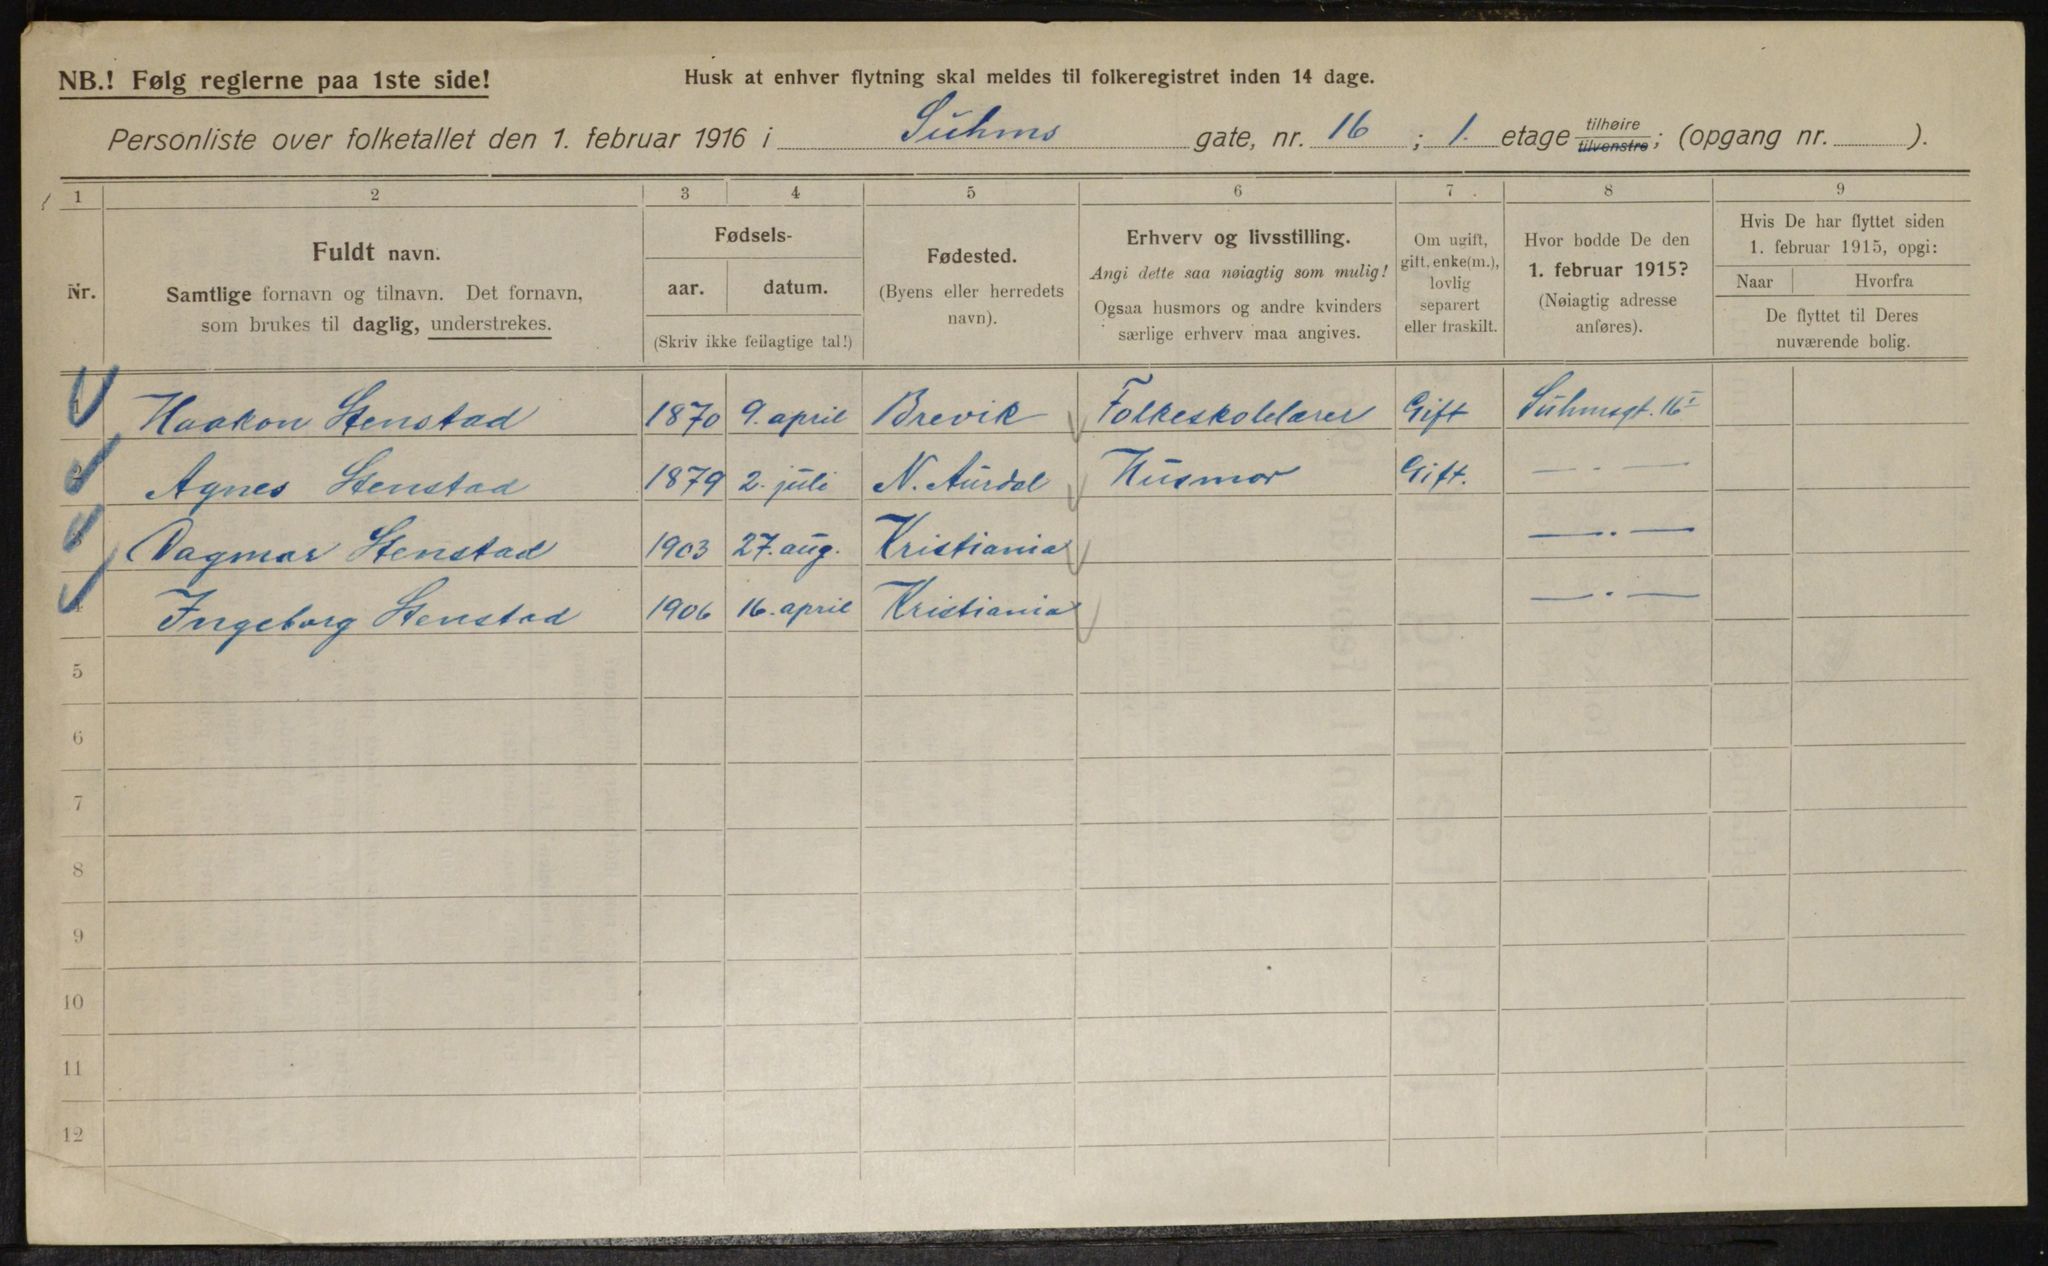 NB.! Følg reglerne paa 1ste side!
Husk at enhver flytning skal meldes til folkeregistret inden 14 dage.
Personliste over folketallet den 1. februar 1916 i Suhms gate, nr. 16; 1. etage tilhøire tilvenstre; (opgang nr. ).
1 2 3 4 5 6 7 8 9
Nr.
Fuldt navn.
Samtlige fornavn og tilnavn. Det fornavn,
som brukes til daglig, understrekes.
Fødsels-
aar. datum.
(Skriv ikke feilagtige tal!)
Fødested.
(Byens eller herredets
navn).
Erhverv og livsstilling.
Angi dette saa nøiagtig som mulig!
Ogsaa husmors og andre kvinders
særlige erhverv maa angives.
Om ugift,
gift, enke(m.),
lovlig
separert
eller fraskilt.
Hvor bodde De den
1. februar 1915?
(Nøiagtig adresse
anføres).
Hvis De har flyttet siden
1. februar 1915, opgi:
Naar Hvorfra
De flyttet til Deres
nuværende bolig.
1 Haakon Stenstad 1870 9. april Brevik Folkeskolelærer Gift Suhmsgt. 16 I
2 Agnes Stenstad 1879 2. juli N. Aurdal Husmor Gift. — . —
3 Dagmar Stenstad 1903 27. aug. Kristiania — . —
4 Ingeborg Stenstad 1906 16. april Kristiania — . —
5
6
7
8
9
10
11
12